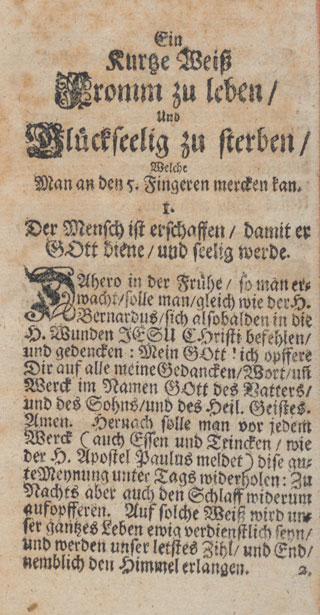 Ein
Kurtze Weiß
Fromm zu leben /
Und
Glückseelig zu sterben /
Welche
Man an den 5. Fingeren mercken kan.
1.
Der Mensch ist erschaffen / damit er
GOtt diene / und seelig werde.
DAhero in der Frühe / so man er-
wacht / solle man / gleich wie der H.
Bernardus / sich alsobalden in die
H. Wunden JESU CHristi befehlen /
und gedencken : Mein GOtt ! ich opffere
Dir auf alle meine Gedancken / Wort / uñ
Werck im Namen GOtt des Vatters /
und des Sohns / und des Heil. Geistes.
Amen. Hernach solle man vor jedem
Werck ( auch Essen und Trincken / wie
der H. Apostel Paulus meldet ) dise gu-
te Meynung unter Tags widerholen : Zu
Nachts aber auch den Schlaff widerum
aufopfferen. Auf solche Weiß wird un-
ser gantzes Leben ewig verdienstlich seyn /
und werden unser letstes Zihl / und End /
nemblich den Himmel erlangen. 2.